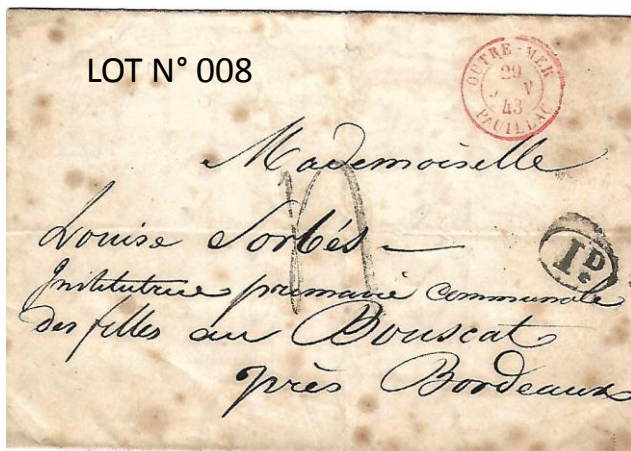 LOT N° 008
OUTRE-MER
29
43
PAUILLAC
Mademoiselle
Louise Sorbés —
1D
Institutrice primaire communale
des filles au Bouscat
près Bordeaux